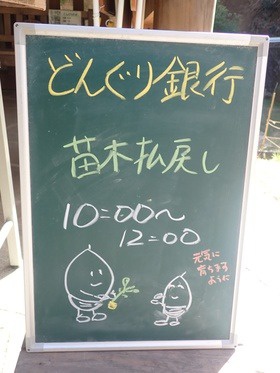 どんぐり銀行
苗木払戻し
10:00〜
12:00
元気に
育ちます
ように